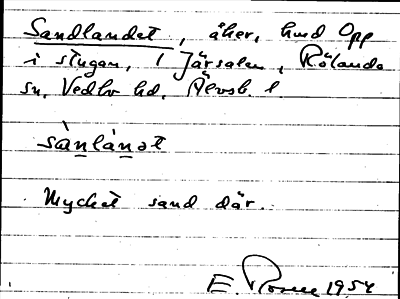 Sandlandet, åker, hmd Opp
i stugan, 1 Järsalen, Rölanda
sn, Vedbo hd, Älvsb. l
sànlánət
Mycket sand där.
E Rosell 1954